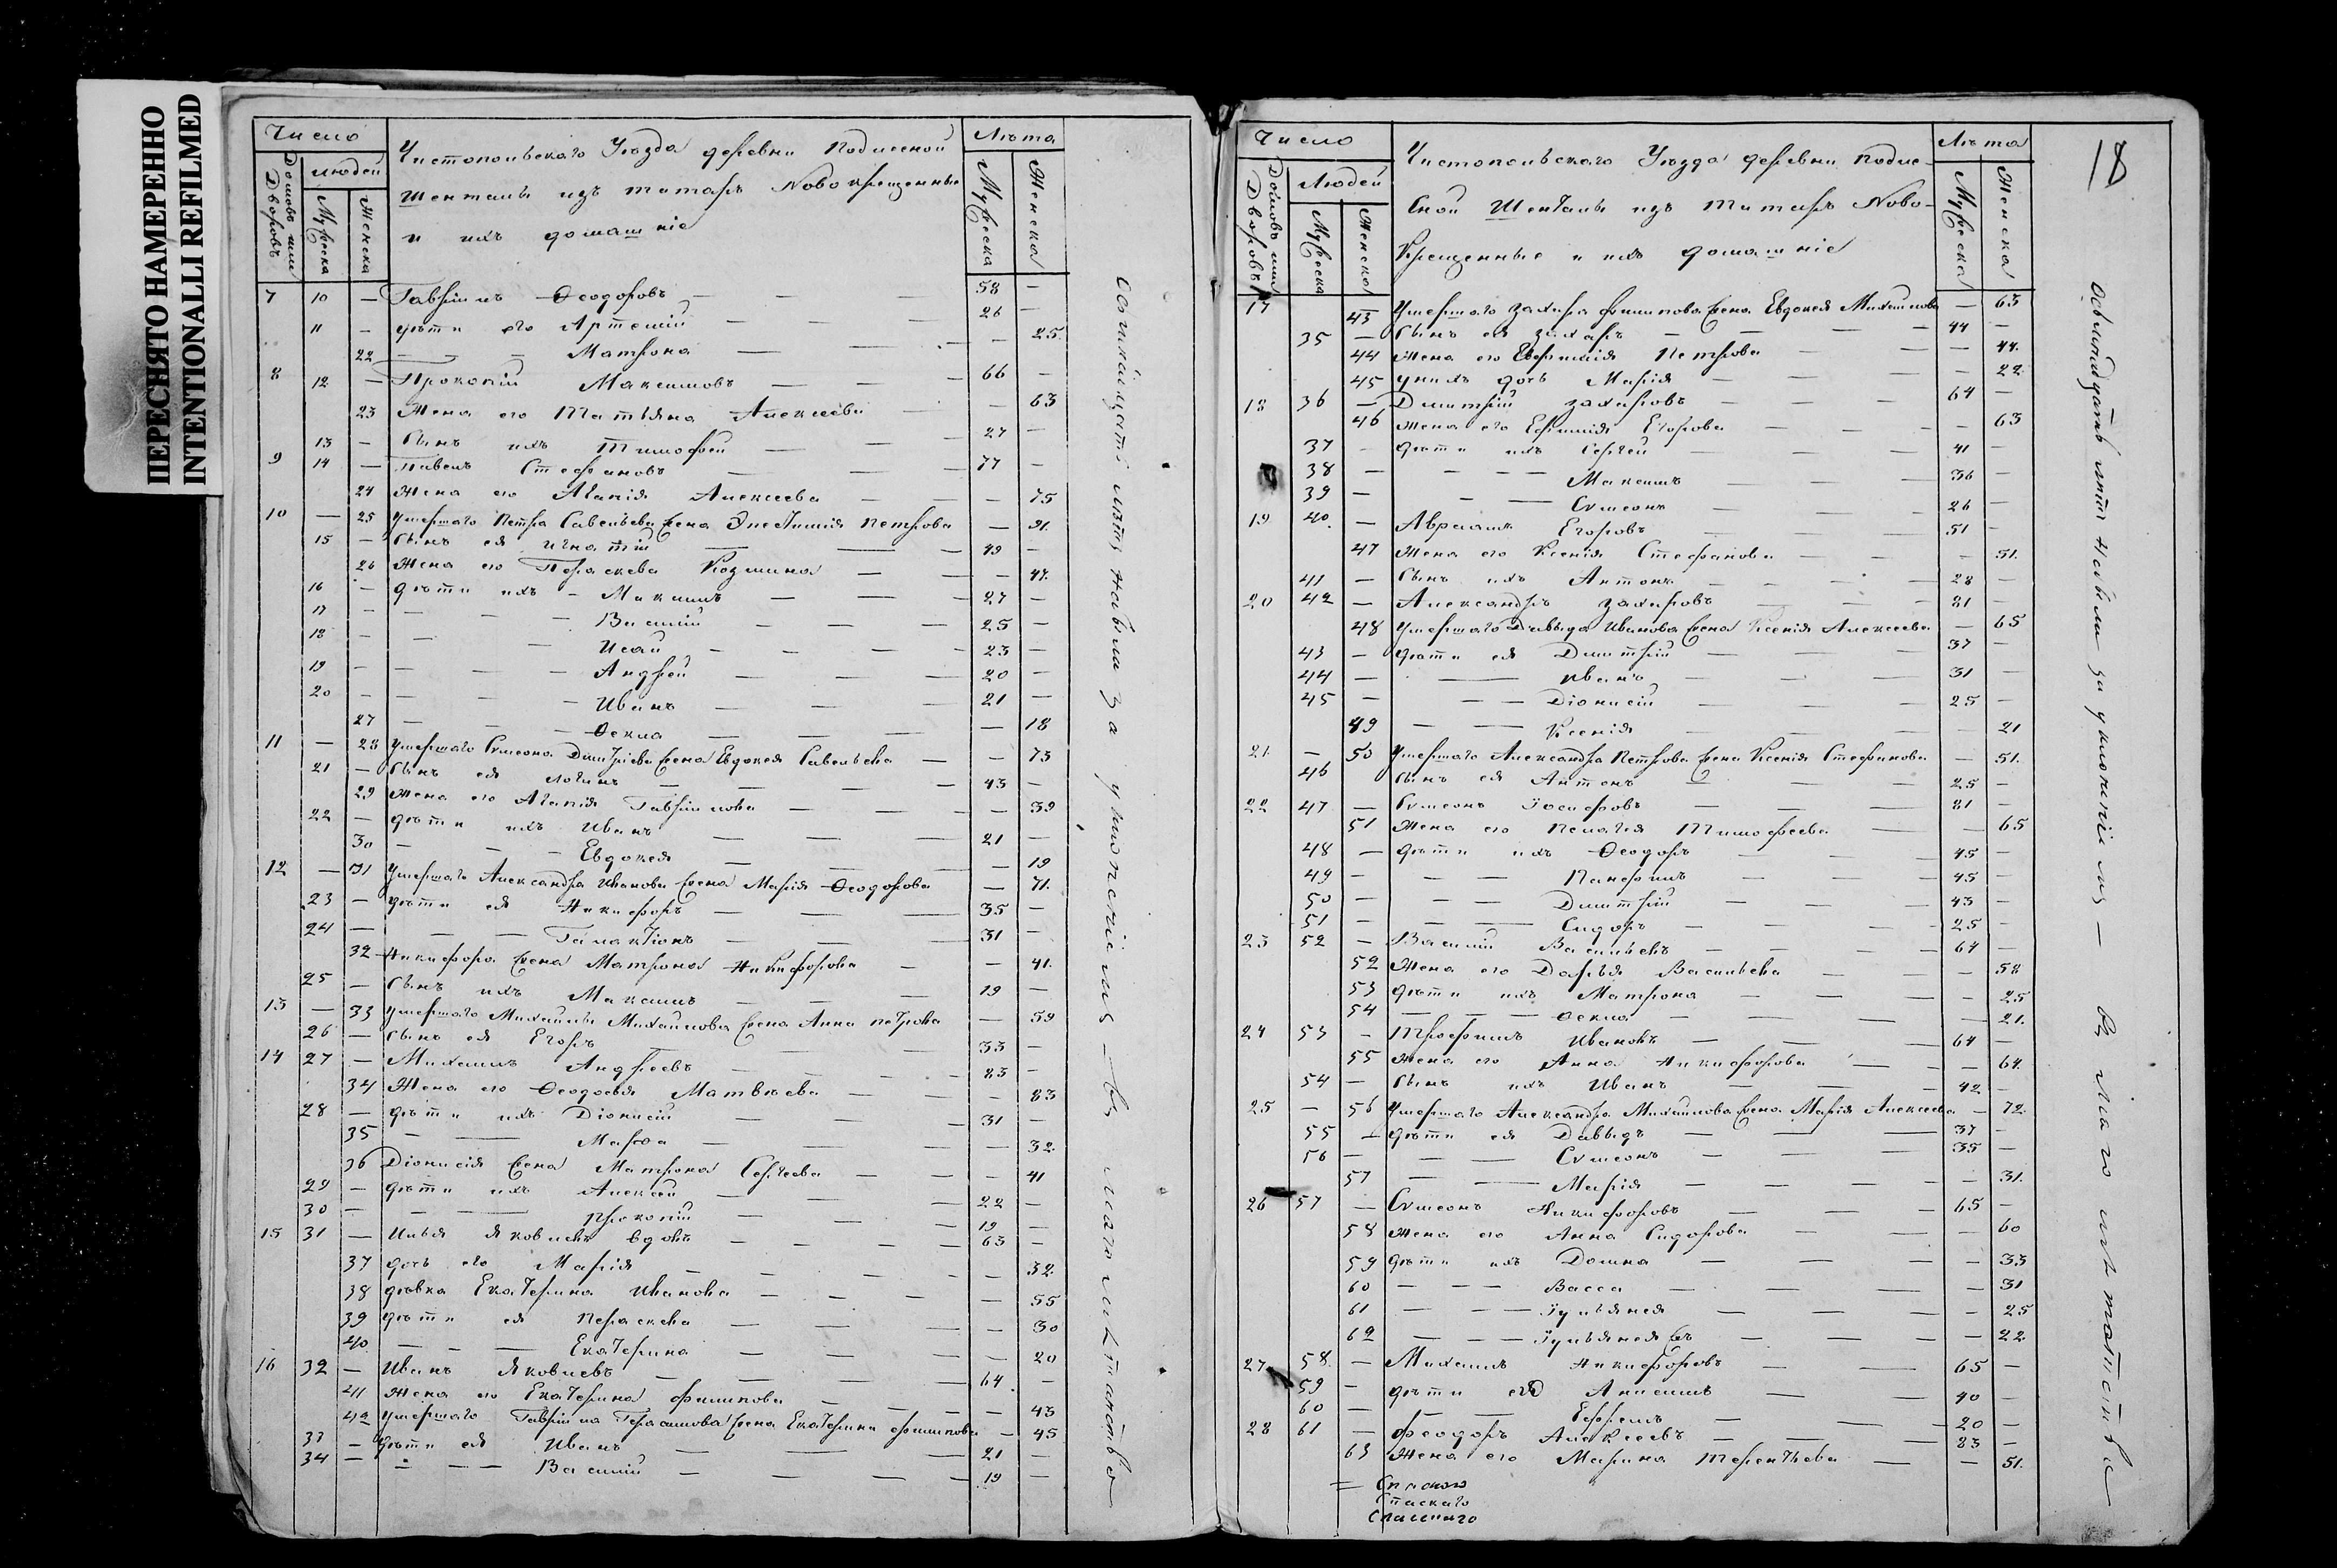 ПЕРЕСНЯТО НАМЕРЕННО
INTENTIONALLI REFILMED
Число
Домовъ или Дворовъ
людей
Мужеска
Женска
Чистопольскаго Уѣзда деревни Подлесной
Шенталы изъ татаръ Новокрещенные
и ихъ домашніе
Лѣта
Мужеска
Женска
7 10 — Гавріилъ Ѳеодоровъ 58 —
11 — дѣти его Артемій 26 —
22 — Матрона — 25
8 12 — Прокопій Максимовъ 66 —
23 Жена его Татьяна Алексеева — 63
13 — Сынъ ихъ Тимофей 27 —
9 14 — Павелъ Стефановъ 77 —
24 Жена его Агапія Алексеева — 75
10 — 25 Умершаго Петра Савельева жена Петрова —
15 — Сынъ ея Игнатій 49 —
26 Жена его Параскева Козмина — 47.
16 — дѣти ихъ — Максимъ 27 —
17 — Василій 25 —
18 — Исай 23 —
19 — Андрей 20 —
20 — Иванъ 21 —
27 — Ѳекла — 18
11 — 28 Умершаго Симеона Дмитріева жена Евдокея Савельева — 73
21 — Сынъ ея Логинъ 43 —
29 Жена его Агапія Гаврілова — 39
22 — дѣти ихъ Иванъ 21 —
30 — Евдокея — 19
12 — 31 Умершаго Александра Иванова жена Марія Ѳеодорова — 71.
23 — дѣти ея Никифоръ 35 —
24 — Галактіонъ 31 —
32 Никифора жена Матрона Никифорова — 41.
25 — Сынъ ихъ Максимъ 19 —
13 — 33 умершаго Михайлы Михайлова жена Анна петрова — 59
26 — Сынъ ея Егоръ 33 —
14 27 — Михаилъ Андреевъ 83 —
34 Жена его Ѳеодосья Матвѣева — 83
28 — дѣти ихъ Діонисій 31 —
35 — Марѳа — 32
36 Діонисія жена Матрона Сергеева — 41
29 — дѣти ихъ Алексей 22 —
30 — Прокопій 19 —
15 31 — Илья Яковлевъ вдовъ 63 —
37 дочь его Марія — 32.
38 дѣвка Екатерина Иванова — 55
39 дѣти ея Параскева — 30
40 — Екатерина — 20
16 32 — Иванъ Яковлевъ 64 —
41 Жена его Екатерина Филипова — 43
42 умершаго Гавріила Герасимова жена Екатерина Филипова — 45
33 — дѣти ея Иванъ 21 —
34 — Василій 19 —
18
Число
Домовъ или Дворовъ
Людей
Мужеска
Женска
Чистопольскаго Уѣзда деревни Подле-
сной Шенталы изъ татаръ Ново-
Крещенные и ихъ домашніе
Лѣта
Мужеска
Женска
17 43 Умершаго Захара Филипова жена Евдокея Михайлова — 63
35 — Сынъ ея Захаръ 44 —
44 Жена его Евфимія Петрова — 44.
45 у нихъ дочь Марія — 22
18 36 — Дмитрій Захаровъ 64 —
46 Жена его Ефимія Егорова — 63
37 — дѣти ихъ Сергей 41 —
38 — Максимъ 36 —
39 — Симеонъ 26 —
19 40 — Авраамъ Егоровъ 51 —
47 Жена его Ксенія Стефанова — 51.
41 — Сынъ ихъ Антонъ 28 —
20 42 — Александръ Захаровъ 81 —
48 Умершаго Давыда Иванова жена Ксенія Алексеева — 65
43 — дѣти ея Дмитрій 37 —
44 — Иванъ 31 —
45 — Діонисій 25 —
49 — Ксенія — 21
21 — 50 Умершаго Александра Петрова жена Ксенія Стефанова — 51.
46 Сынъ ея Антонъ 25 —
22 47 — Симеонъ Іосифовъ 81 —
51 Жена его Пелагея Тимофеева — 65
48 — дѣти ихъ Ѳеодоръ 45 —
49 — Панфилъ 45 —
50 — Дмитрій 43 —
51 — Сидоръ 25 —
23 52 — Василій Васильевъ 64 —
52 Жена его Дарья Васильева — 58
53 дѣти ихъ Матрона — 25
54 — Ѳекла — 21.
24 53 — Трофимъ Ивановъ 64 —
55 Жена его Анна Никифорова — 64.
54 — Сынъ ихъ Иванъ 42 —
25 — 56 Умершаго Александра Михайлова жена Марія Алексеева — 72.
55 — дѣти ея Давыдъ 37 —
56 — Симеонъ 35 —
57 — Марія — 31.
26 57 — Симеонъ Никифоровъ 65 —
58 Жена его Анна Сидорова — 60
59 дѣти ихъ Домна — 33
60 — Васса — 31
61 — Іульянея — 25
62 — Іульянея — 22
27 58. — Михаилъ Никифоровъ 65 —
59 — дѣти его Анисимъ 40 —
60 — Ефремъ 20 —
28 61 — Феодоръ Алексеевъ 83 —
63 Жена его Марина Терентьева — 51.
Спаского
Спаскаго